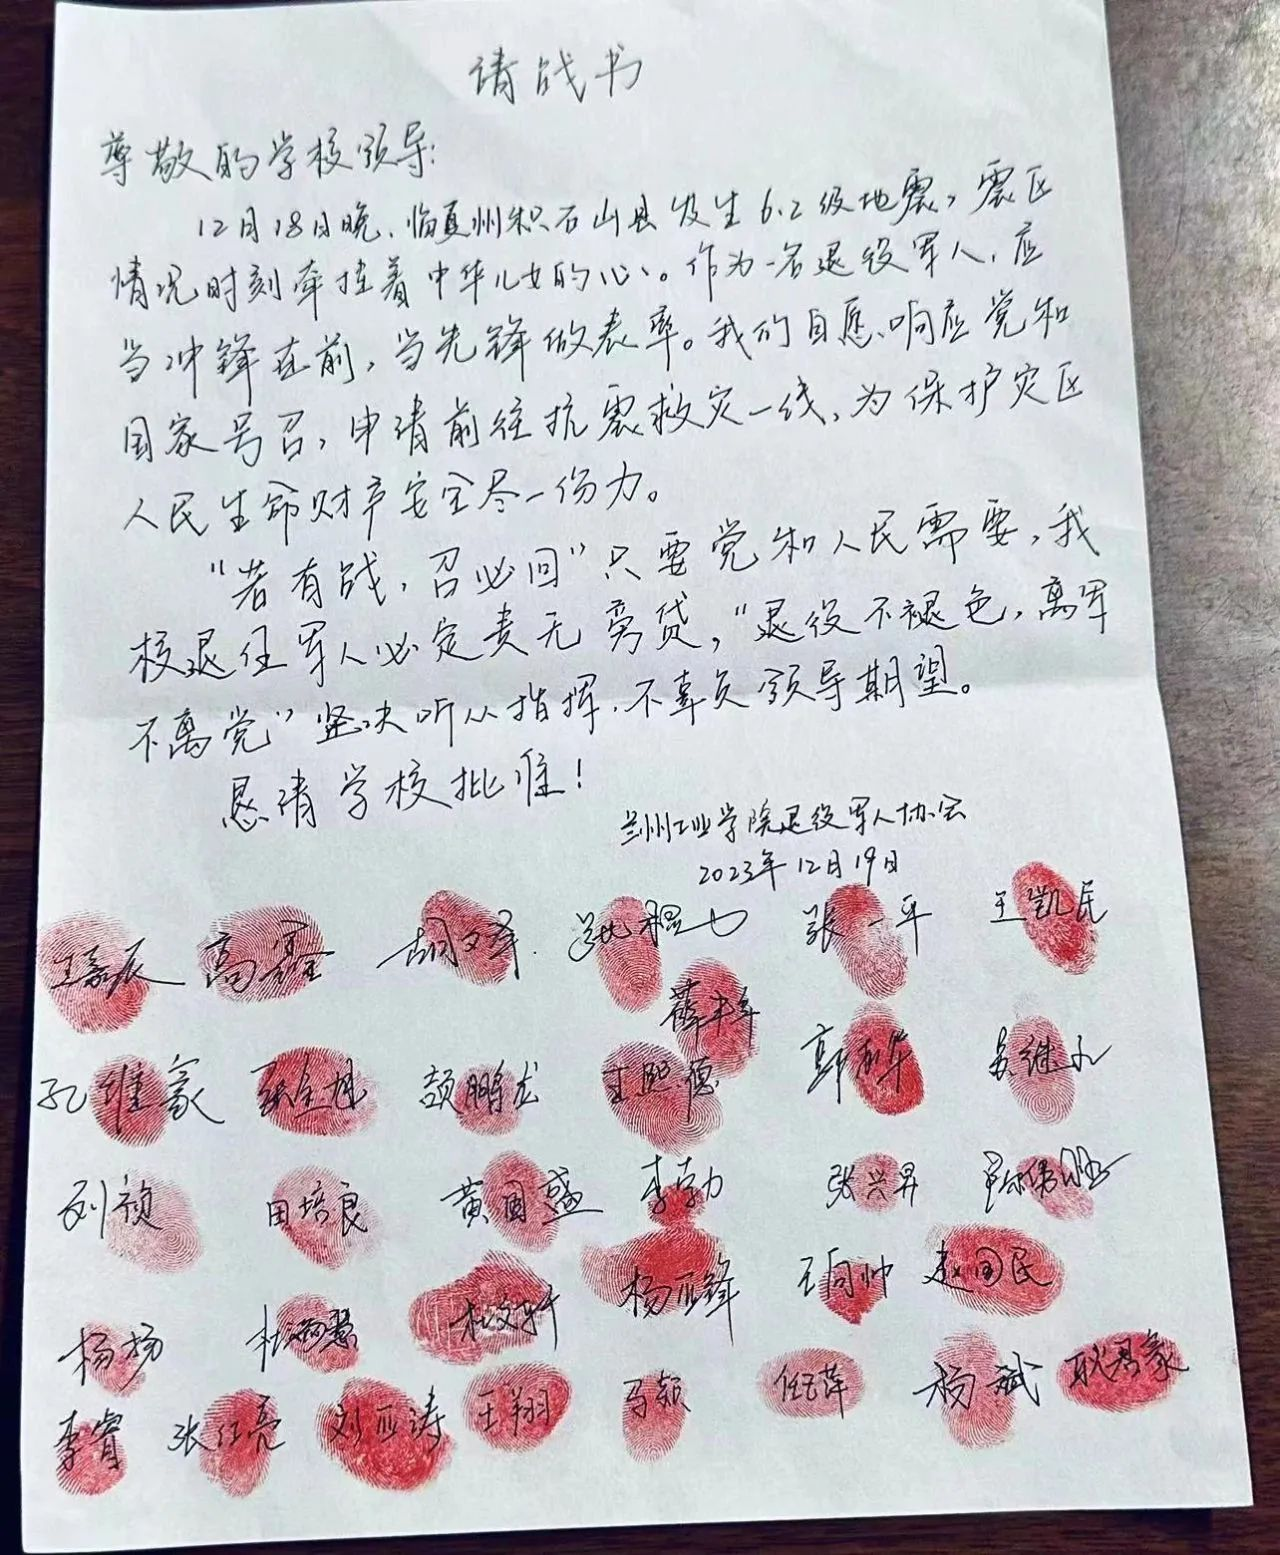 请战书
尊敬的学校领导:
12月18日晚、临夏州积石山县发生6.2级地震,震区
情况时刻牵挂着中华儿女的心。作为一名退役军人,应
当冲锋在前,当先锋做表率。我们自愿响应党和
国家号召,申请前往抗震救灾一线,为保护灾区
人民生命财产安全尽一份力。
“若有战,召必回”只要党和人民需要,我
校退役军人必定责无旁贷,“退役不褪色,离军
不离党”坚决听从指挥,不辜负领导期望。
恳请学校批准!
兰州工业学院退役军人协会
2023年12月19日
王嘉辰 高鑫 胡文泽 张一平 王凯民
孔维豪 张全旭 颉鹏龙 王熙德 吴继永
刘祯 田培良 黄国盛 李勃 张兴昇
杨扬 杜海慧 杜文轩 杨亚锋 王同帅 赵国民
李睿 张红亮 刘亚涛 王翔 马颖 任萍 杨斌 耿君豪